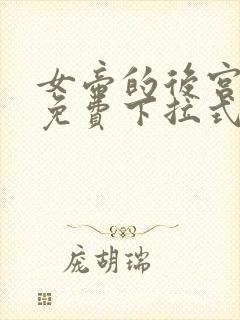 女帝的後宮
免費下拉式
庞胡瑞